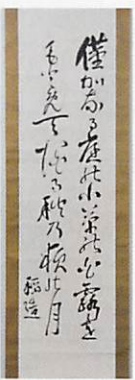 僅かなる庭の小草の白露を
もとめて宿る秋の夜の月
稲造